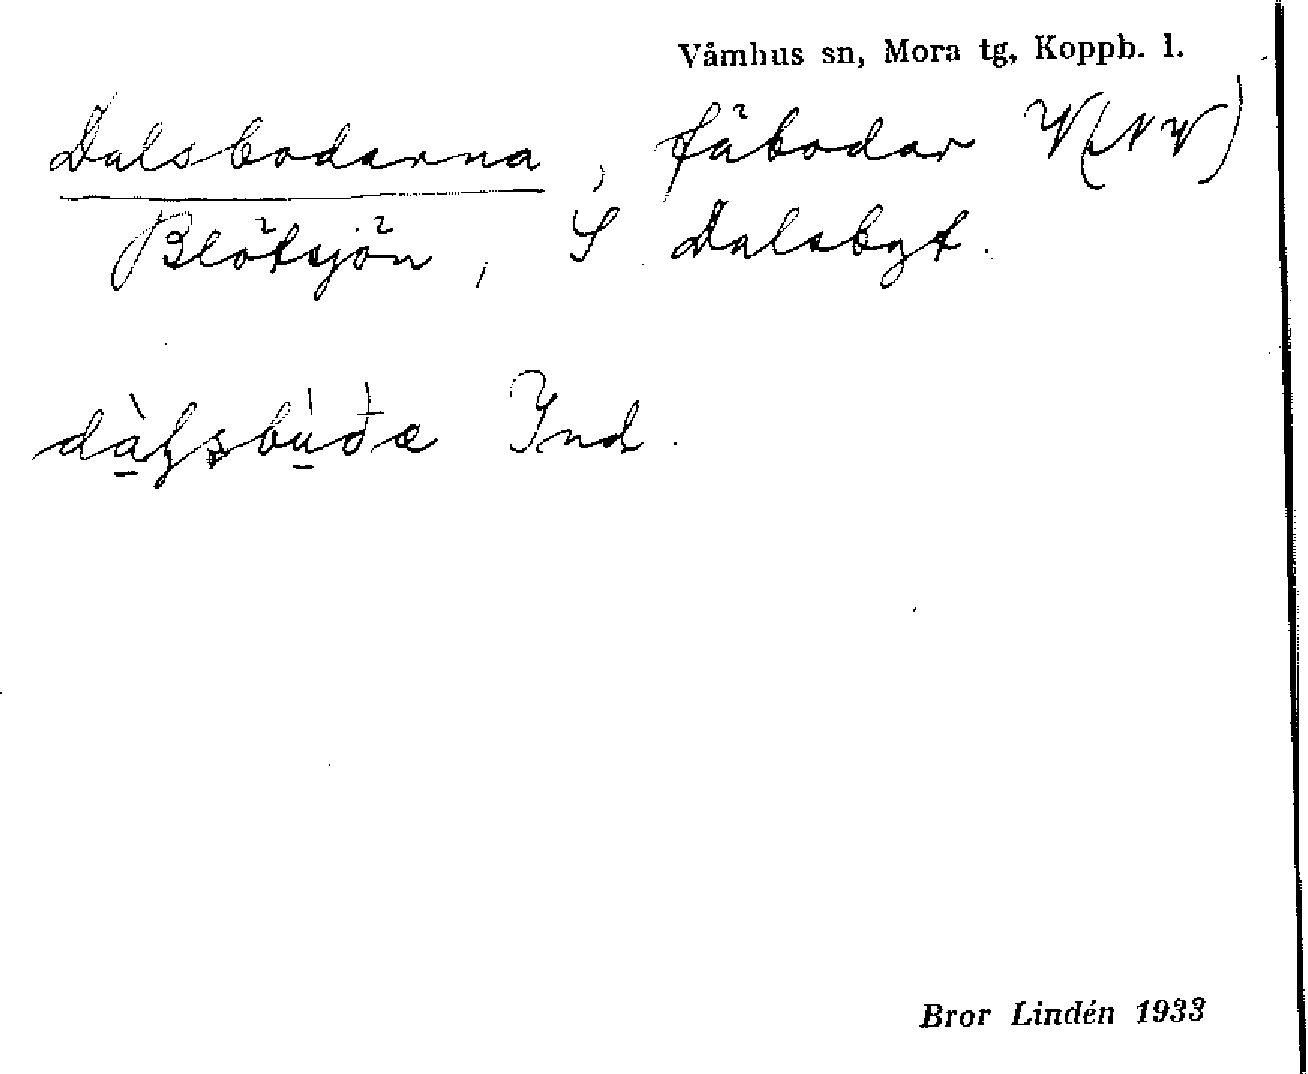 Våmhus sn, Mora tg, Koppb. l.
Dalsbodarna, fäbodar V(NV)
Blötsjön, S Dalsbyt.
Ind.
Bror Lindén 1933